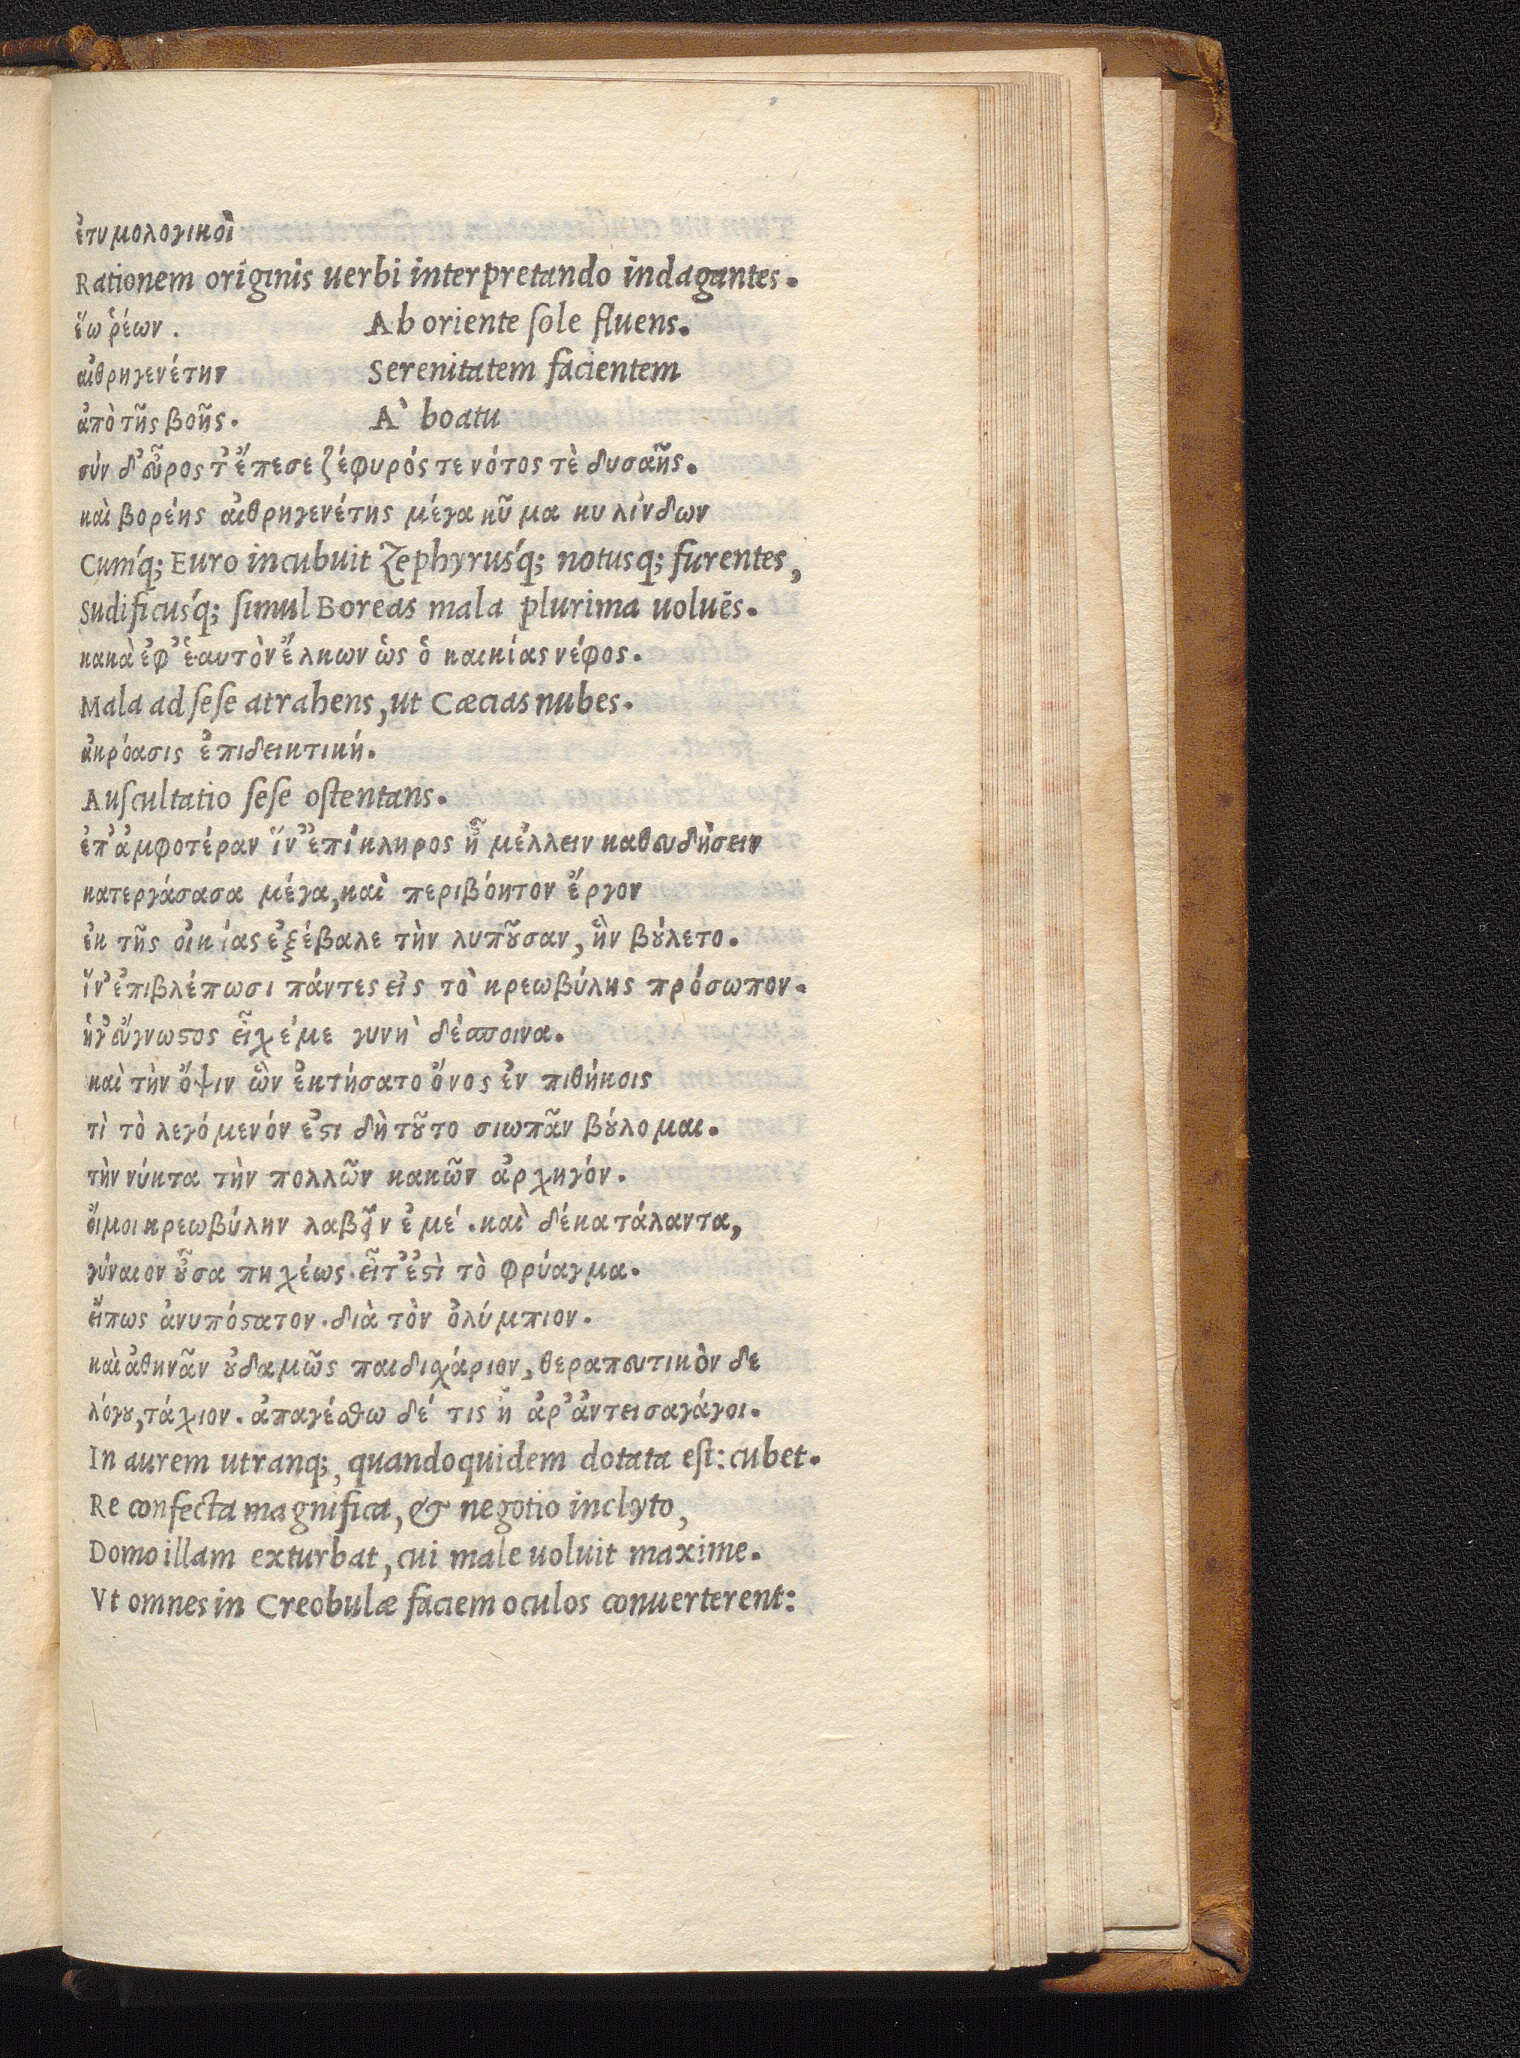 ἐτυμολογικοὶ
Rationem originis uerbi interpretando indagantes.
ἕω ῥέων. Ab oriente ſole fluens.
αἰθρηγενέτην Serenitatem facientem
ἀπὸ τῆς βοῆς. A' boatu
σύν δ' εὖρος τ' ἔπεσε ζέφυρός τε νότος τὲ δυσαῆς.
καὶ βορέης αἰθρηγενέτης μέγα κῦμα κυλίνδων
Cum'q; Euro incubuit Zephyrus'q; notusq; furentes,
Sudificus'q; ſimul Boreas mala plurima uoluēs.
κακὰ ἐφ' ἑαυτὸν ἕλκων ὡς ὁ καικίας νέφος.
Mala ad ſeſe atrahens, ut Cæcias nubes.
ἀκρόασις ἐπιδεικτική.
Auſcultatio ſeſe oſtentans.
ἐπ' ἀμφοτέραν ἵν' ἐπίκληρος ᾖ μέλλειν καθευδήσειν
κατεργάσασα μέγα, καὶ περιβόητον ἔργον
ἐκ τῆς οἰκίας ἐξέβαλε τὴν λυπȣ͂σαν, ἣν βȣ́λετο.
ἵν' ἐπιβλέπωσι πάντες εἰς τὸ κρεωβύλης πρόσωπον.
ἠγ' εὔγνωϛος εἶχ' ἐμε γυνὴ δέσποινα.
καὶ τὴν ὄψιν ὣν ἐκτήσατο ὄνος ἐν πιθήκοις
τὶ τὸ λεγόμενόν ἐϛι δὴ τȣ͂το σιωπᾶν βȣ́λομαι.
τὴν νύκτα τὴν πολλῶν κακῶν ἀρχηγόν.
οἴμοι κρεωβύλην λαβεῖν ἐμέ. καὶ δέκα τάλαντα,
γύναιον ȣ͂̓σα πηχέως. εἶτ' ἐϛὶ τὸ φρύαγμα.
εἴπως ἀνυπόϛατον. διὰ τὸν ὀλύμπιον.
καὶ ἀθηνᾶν ȣ̓δαμῶς παιδιχάριον, θεραπευτικὸν δε
λόγȣ, τάχιον. ἀπαγέσθω δέ τις ἢ ἀρ' ἀντεισαγάγοι.
In aurem utranq;, quandoquidem dotata eſt: cubet.
Re confecta magnifica, & negotio inclyto,
Domo illam exturbat, cui male uoluit maxime.
Vt omnes in Creobulæ faciem oculos conuerterent: